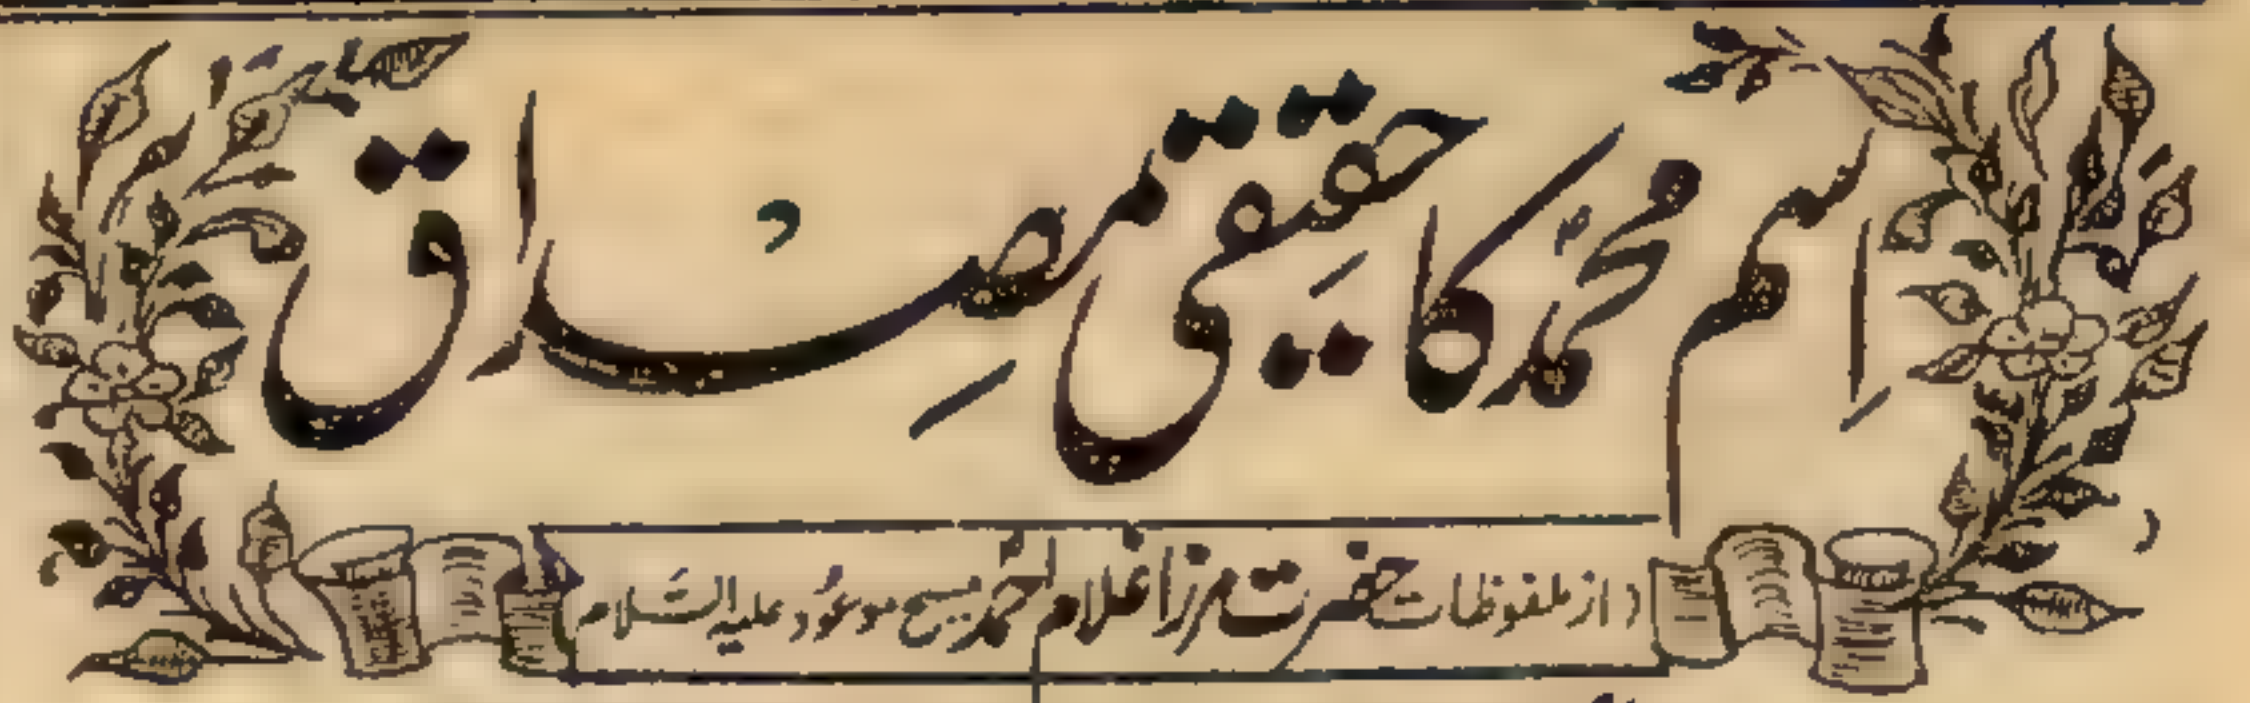 اِسم محمّد کا حقیقی مِصداق
(از ملفوظات حضرت مرزا غلام احمد مسیح موعُود علیہ السَّلام